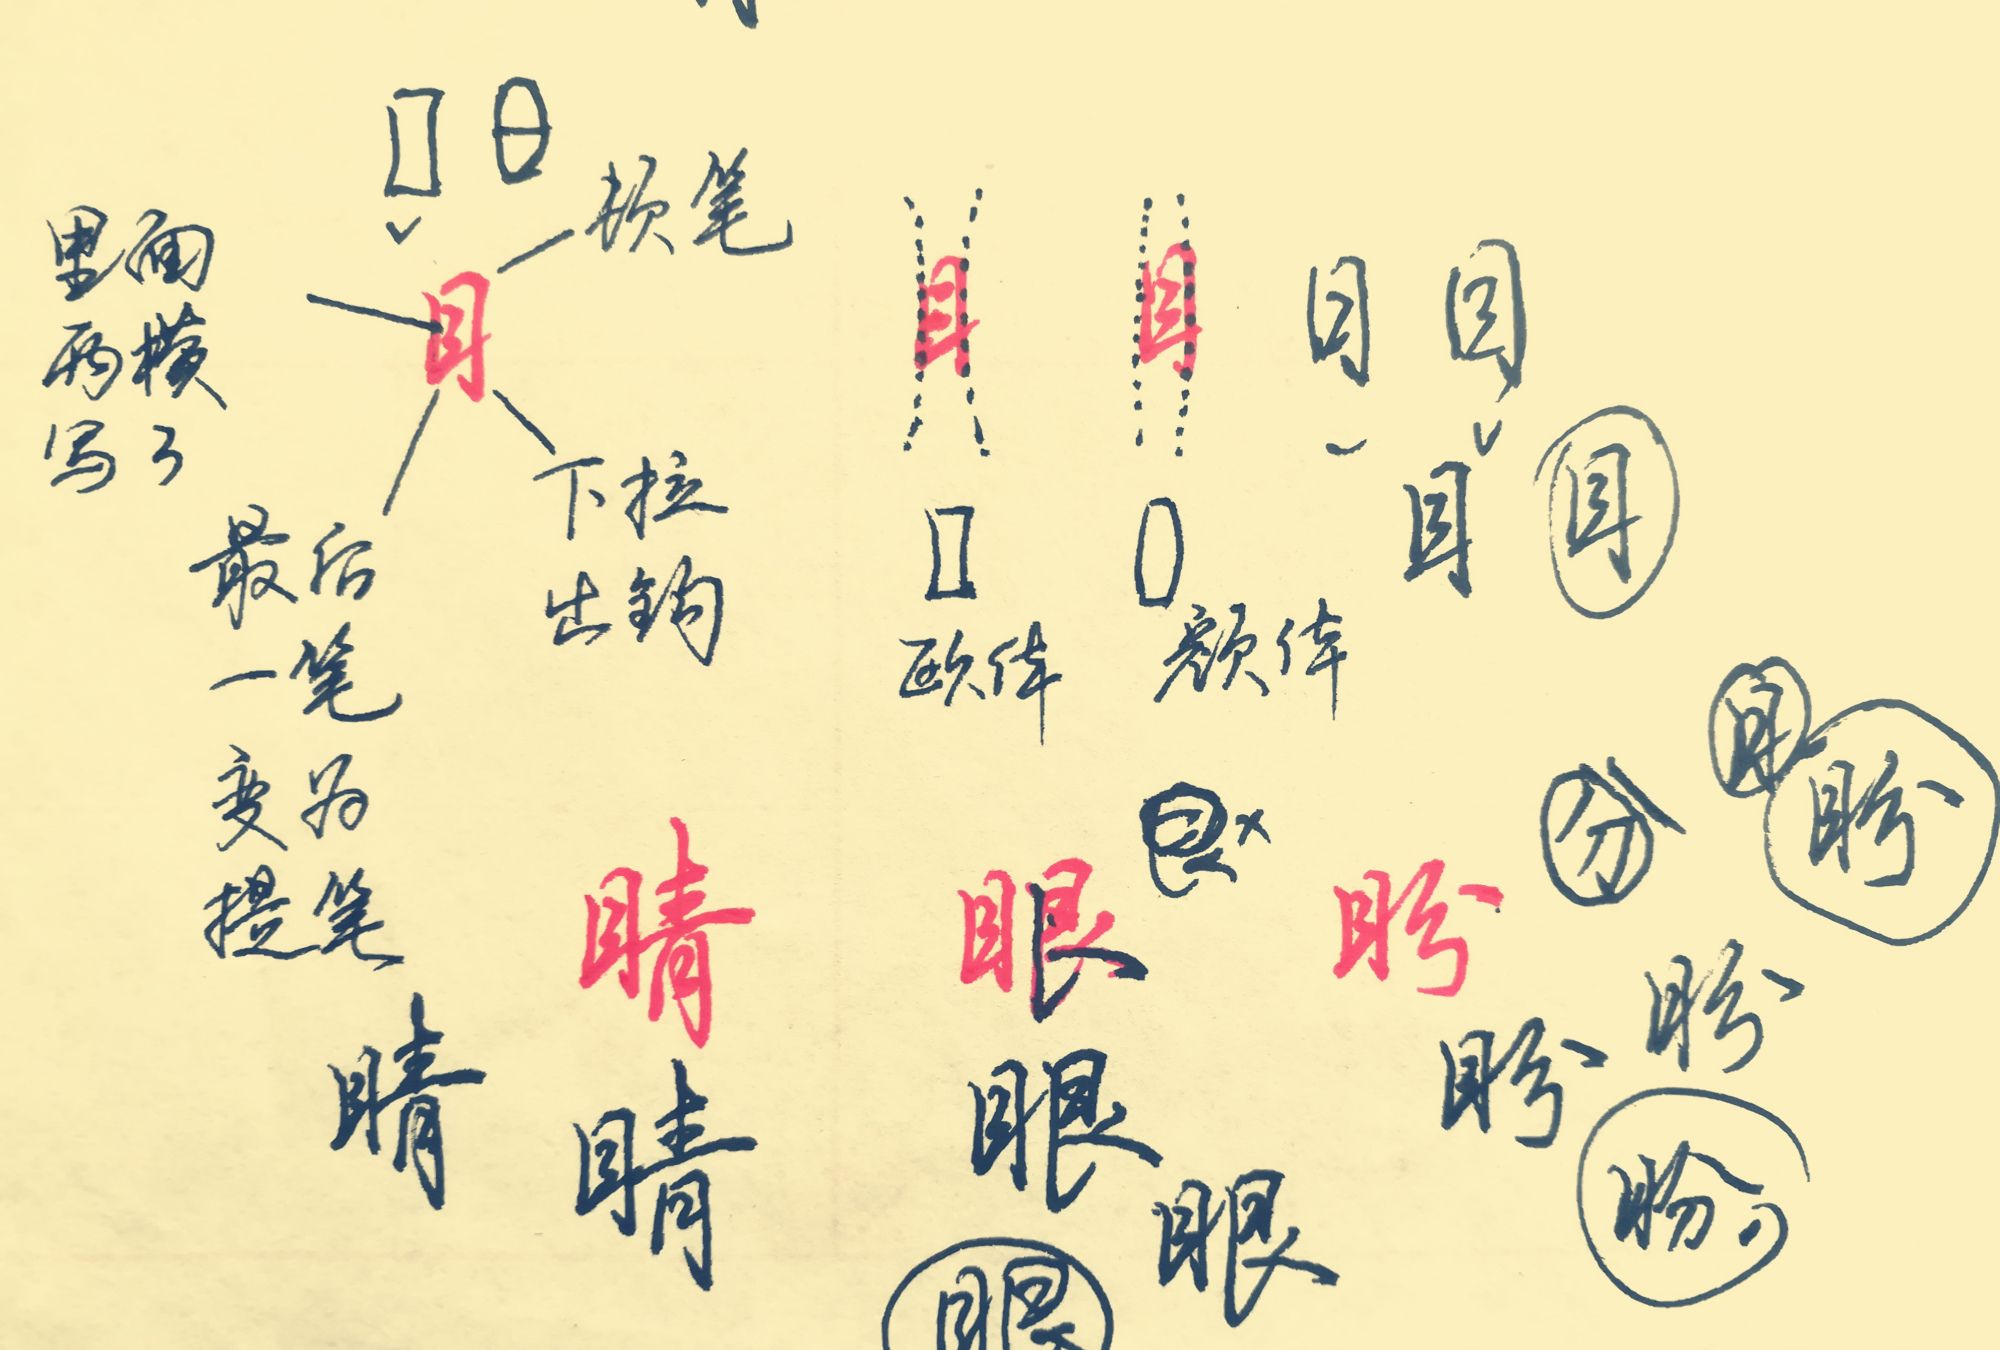 顿笔
里面
两横
写了
目
目 目 目 目
目 目
下拉
出钩
最后
一笔
变为
提笔
欧体 颜体
目 盼
分
睛 眼 盼
盼
睛 睛 眼 盼
眼 盼
眼